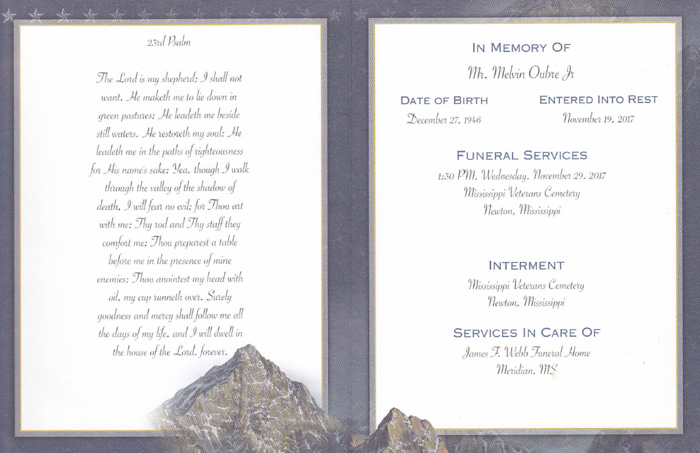 23rd Psalm
The Lord is my shepherd; I shall not
want. He maketh me to lie down in
green pastures; He leadeth me beside
still waters. He restoreth my soul; He
leadeth me in the paths of righteousness
for His name's sake; Yea, though I walk
through the valley of the shadow of
death, I will fear no evil; for Thou art
with me; Thy rod and Thy staff they
comfort me; Thou preparest a table
before me in the presence of mine
enemies; Thou anointest my head with
oil, my cup runneth over. Surely
goodness and mercy shall follow me all
the days of my life, and I will dwell in
the house of the Lord, forever.
In Memory Of
Mr. Melvin Oubre Jr
Date of Birth
December 27, 1946
Entered Into Rest
November 19, 2017
Funeral Services
1:30 PM, Wednesday, November 29, 2017
Mississippi Veterans Cemetery
Newton, Mississippi
Interment
Mississippi Veterans Cemetery
Newton, Mississippi
Services In Care Of
James F. Webb Funeral Home
Meridian, MS